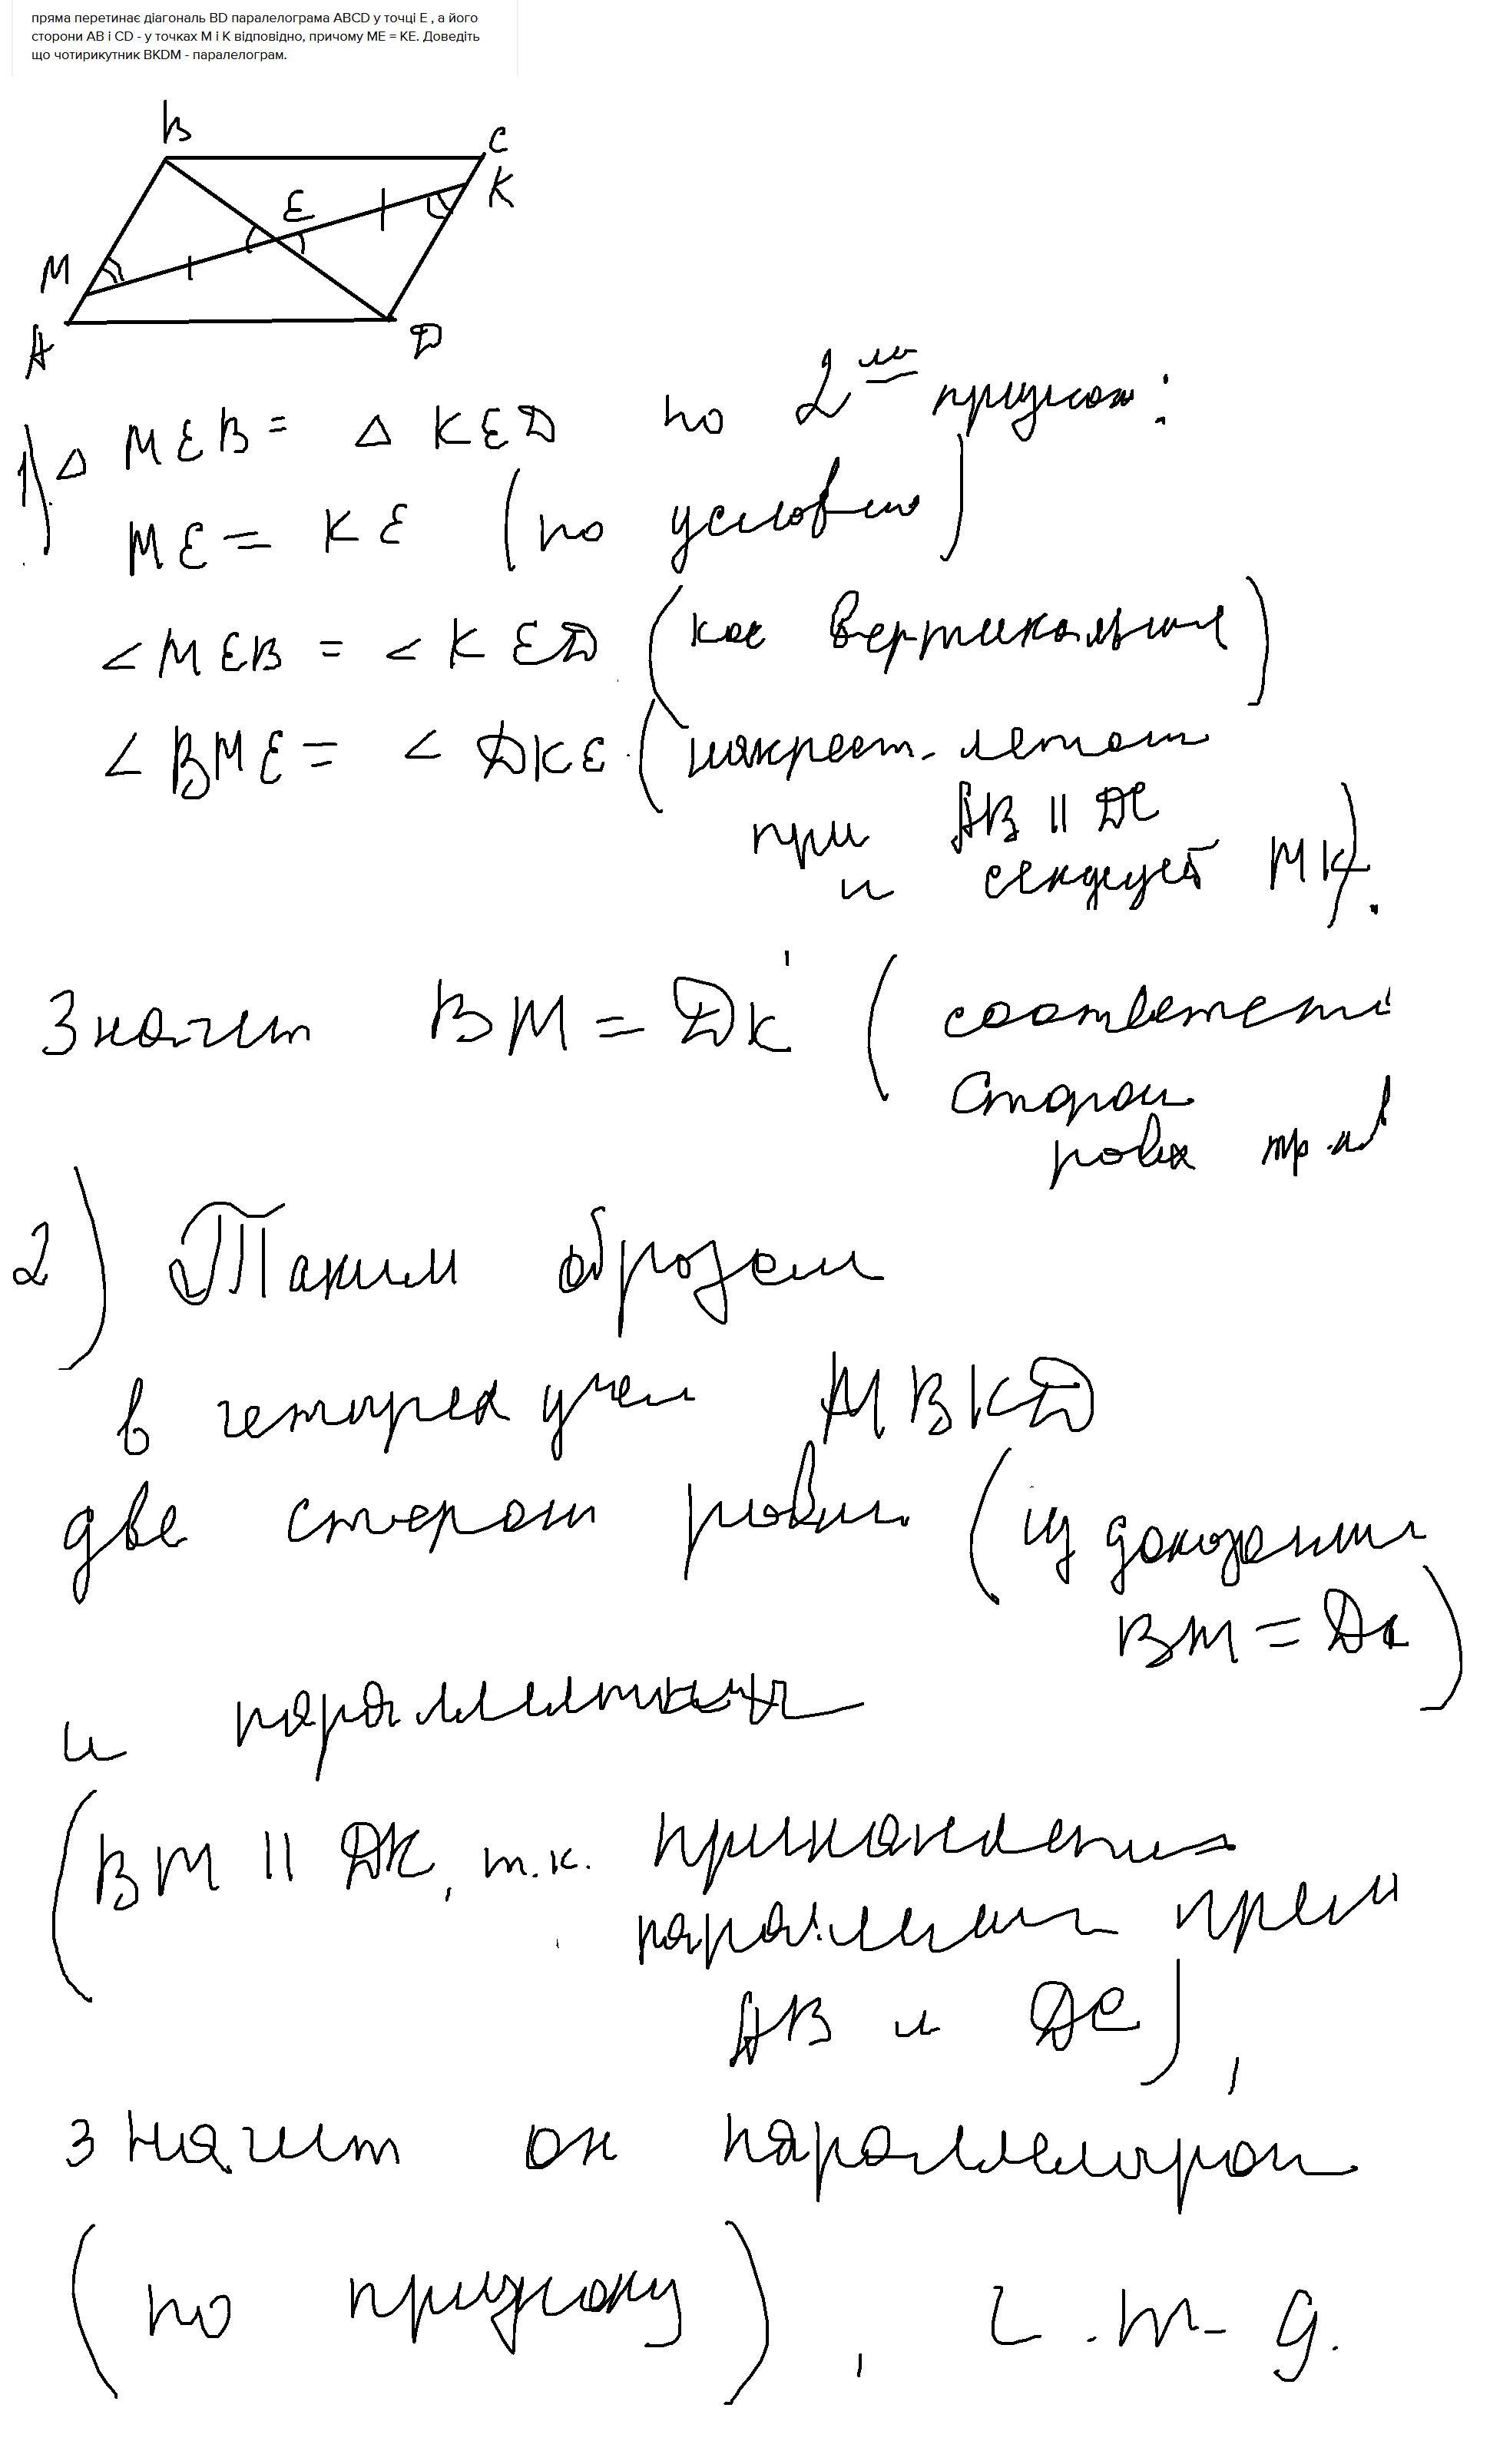 пряма перетинає діагональ BD паралелограма ABCD у точці E , а його
сторони AB і CD - у точках M і K відповідно, причому ME = KE. Доведіть
що чотирикутник BKDM - паралелограм.
B
C
K
E
M
A
D
1) △ MEB = △ KED по 2
ME = KE (по условию)
∠MEB = ∠KED (как вертикальные)
∠BME = ∠DKE (накрест-
при AB || DC
и секущей MK).
Значит BM = DK (соответств
сторон
равн тр-ов
2) Таким образом
в четырехуг MBKD
две стороны равны (из доказанного
BM = DK)
и параллельны
(BM || DK, т.к. принадлежит
параллельным прям
AB и DC),
значит он параллелограм
(по признаку), ч.т-д.